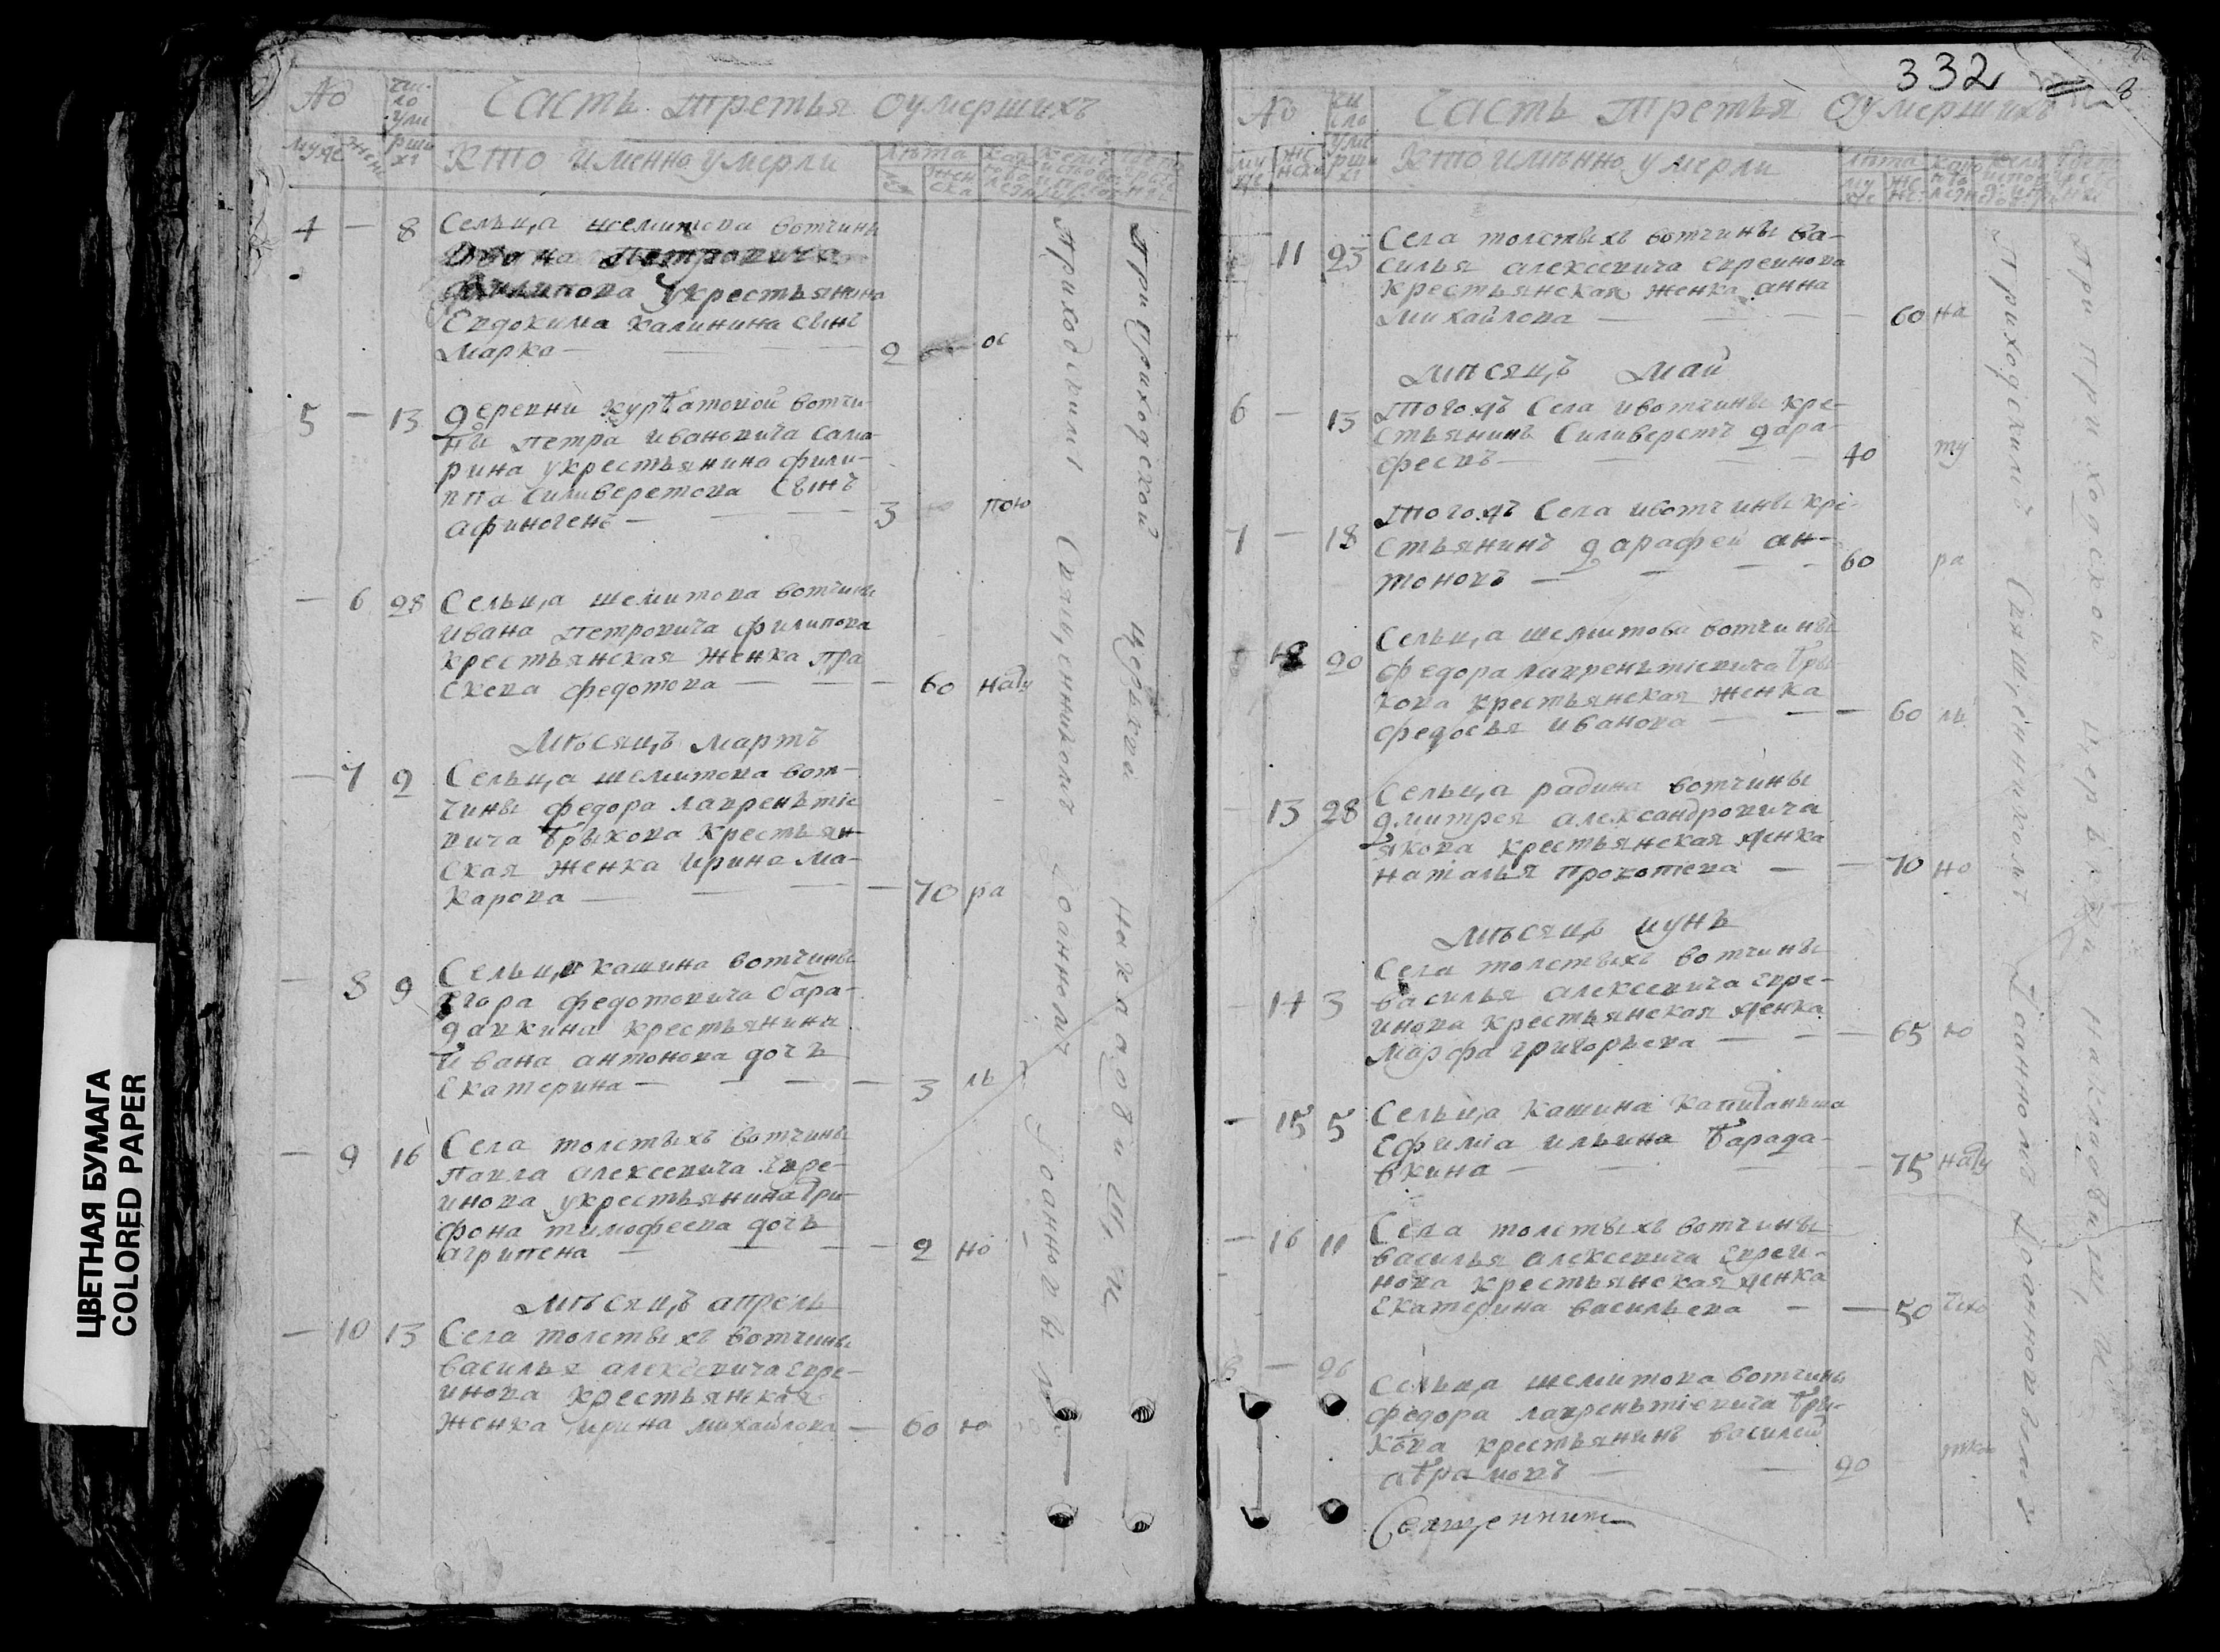 332
8
ЦВЕТНАЯ БУМАГА
COLORED PAPER
№
число умерших
Часть третья оумершихъ
муже
жен
кто именно умерли
лѣта
4 — 8 Сельца шелитова вотчины
Ивана Петровича
Филипова у крестьянина
Евдокима калинина сынъ
Марко — 2 ос
5 — 13 деревни курбатовой вотчи-
ны петра ивановича сама-
рина укрестьянина фили-
ппа Силиверстова Сынъ
афиногенъ — 3 пою
— 6 28 Сельца шелитова вотчины
ивана петровича филипова
крестьянская женка пра
скева федотова — 60 нату
Мѣсяцъ мартъ
— 7 2 Сельца шелитова вот-
чины федора лаврентіе
вича брыкова крестьян-
ская женка ирина ма-
карова — 70 ра
— 8 9 Сельца кашина вотчины
егора федотовича бара-
давкина крестьянина
ивана антонова дочь
екатерина — 3 ль
— 9 16 Села толстыхъ вотчины
Павла алексеевича евре-
инова укрестьянина три-
фона тимофеева дочь
агрипена — 2 но
Мѣсяцъ апрель
— 10 13 Села толстыхъ вотчины
василья алексеевича евре-
инова крестьянская
женка ирина михайлова — 60 ю
Приходскимъ Священникомъ Іоанномъ Іоанновымъ
При приходской церкви на кладбищи
№
число умерших
Часть третья Оумершихъ
муже
женски
кто имѣнно умерли
лѣта
— 11 23 Села толстыхъ вотчины ва-
силья алексеевича евреинова
крестьянская женка анна
михайлова — 60 на
мѣсяцъ май
6 — 13 Тогожъ Села ивотчины кре-
стьянинъ Силиверстъ дара-
феевъ — 40 ту
7 — 18 Тогожъ Села ивотчины кре-
стьянинъ дарафей ан-
тоновъ — 60 ра
20 Сельца шелитова вотчины
федора лаврентіевича бры-
кова крестьянская женка
федосья иванова — 60 ль
— 13 28 Сельца радина вотчины
дмитрея александровича
якова крестьянская женка
наталья прокофева — 70 но
мѣсяцъ иунь
— 14 3 Села толстыхъ вотчины
василья алексеевича евре-
инова крестьянская женка
марфа григорьева — 65 ю
— 15 5 Сельца Кашина капитанша
Ефиміа ильина барада-
вкина — 75 нату
— 16 11 Села толстыхъ вотчины
василья алексеевича евреи-
нова крестьянская женка
екатерина васильева — 50 чехо
8 — 26 Сельца шелитова вотчины
федора лаврентіевича бры-
кова крестьянинъ василей
абрамовъ — 20
Приходскимъ Священникомъ Іоанномъ Іоанновымъ
При приходской церкви на кладбищи
Священникъ